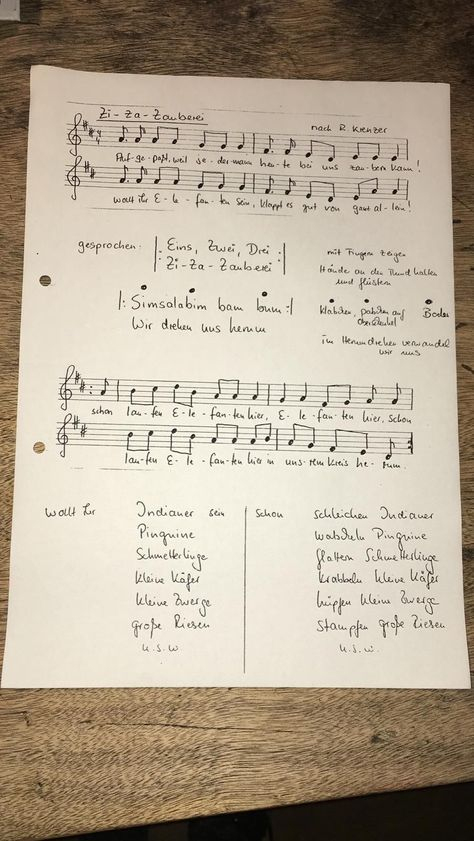 Zi-Za-Zauberei
nach R. Krenzer
Auf-ge-paßt, weil je-der-mann heu-te bei uns zau-bern kann!
wollt ihr E-le-fan-ten sein, klappt es gut von ganz al-lein!
gesprochen: |: Eins, Zwei, Drei :| mit Fingern zeigen
Zi-Za-Zauberei Hände an den Mund halten
und flüstern
|: Simsalabim bam bum :| klatschen, patschen auf Boden
oberschenkel
Wir drehen uns herum im Herumdrehen verwandeln
wir uns
schon lau-fen E-le-fan-ten hier, E-le-fan-ten hier, schon
lau-fen E-le-fan-ten hier in uns-rem Kreis he-rum.
wollt ihr Indianer sein schon schleichen Indianer
Pinguine watscheln Pinguine
Schmetterlinge flattern Schmetterlinge
kleine Käfer krabbeln kleine Käfer
kleine Zwerge hüpfen kleine Zwerge
große Riesen stampfen große Riesen
u.s.w. u.s.w.